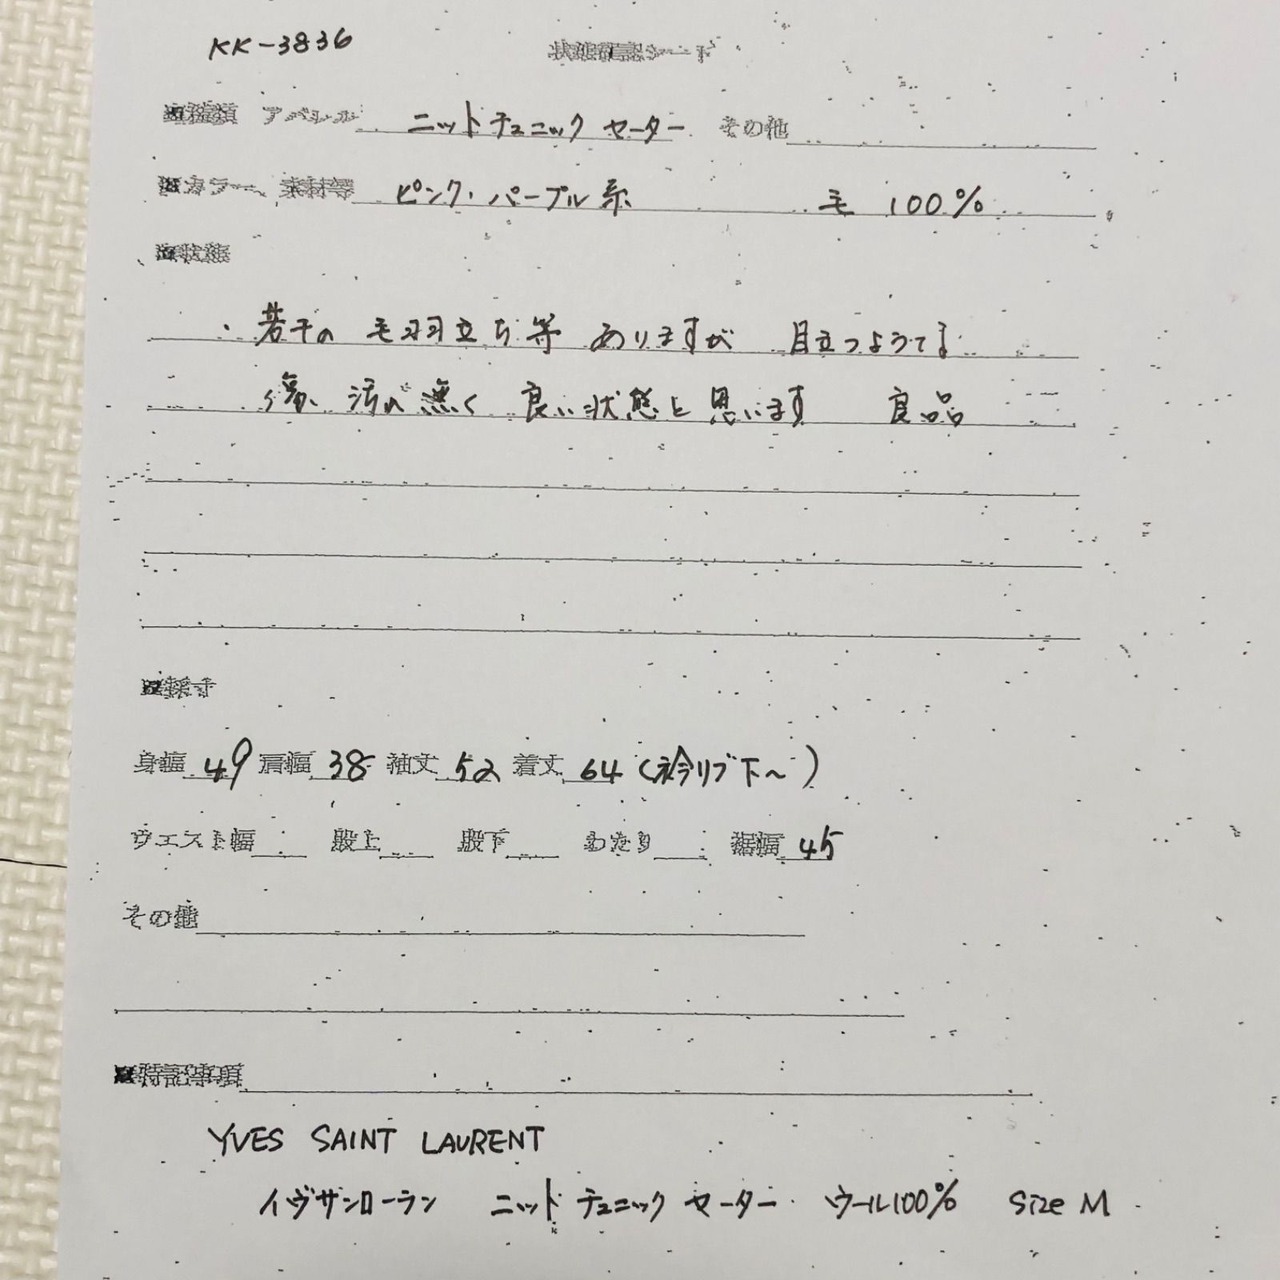 KK-3836
状態確認シート
■種類 アパレル ニットチュニックセーター その他
■カラー、素材等 ピンク・パープル系 毛 100%
■状態
・若干の毛羽立ち等ありますが 目立つような
傷、汚れ無く 良い状態と思います 良品
■採寸
身幅 49 肩幅 38 袖丈 52 着丈 64 (衿リブ下~)
ウエスト幅 股上 股下 わたり 裾幅 45
その他
■特記事項
YVES SAINT LAURENT
イヴサンローラン ニットチュニックセーター ウール100% Size M